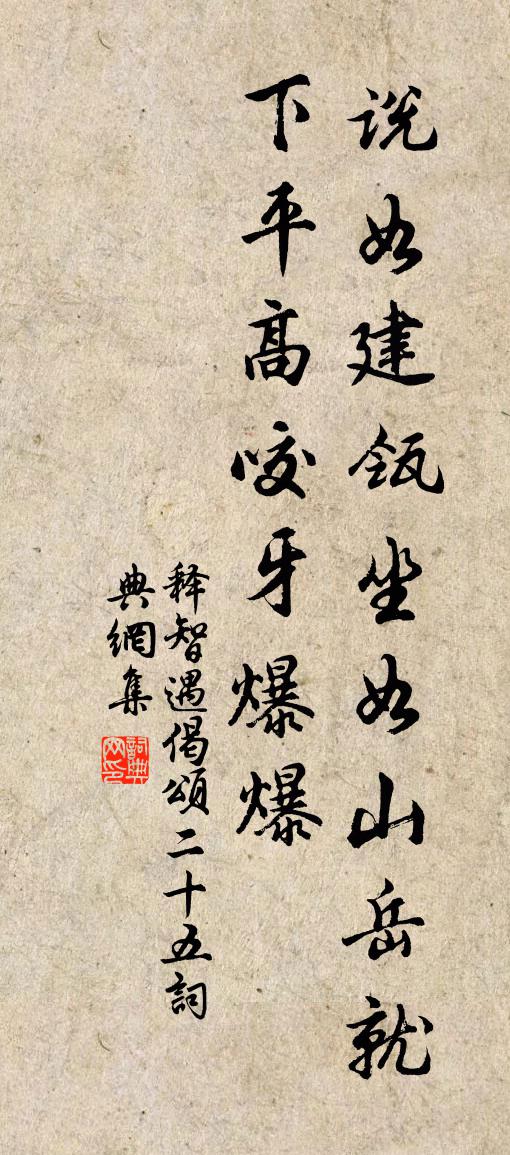 说如建瓴坐如山岳就
下平高咬牙爆爆
释智遇偈颂二十五詞
典網集
詞典网印